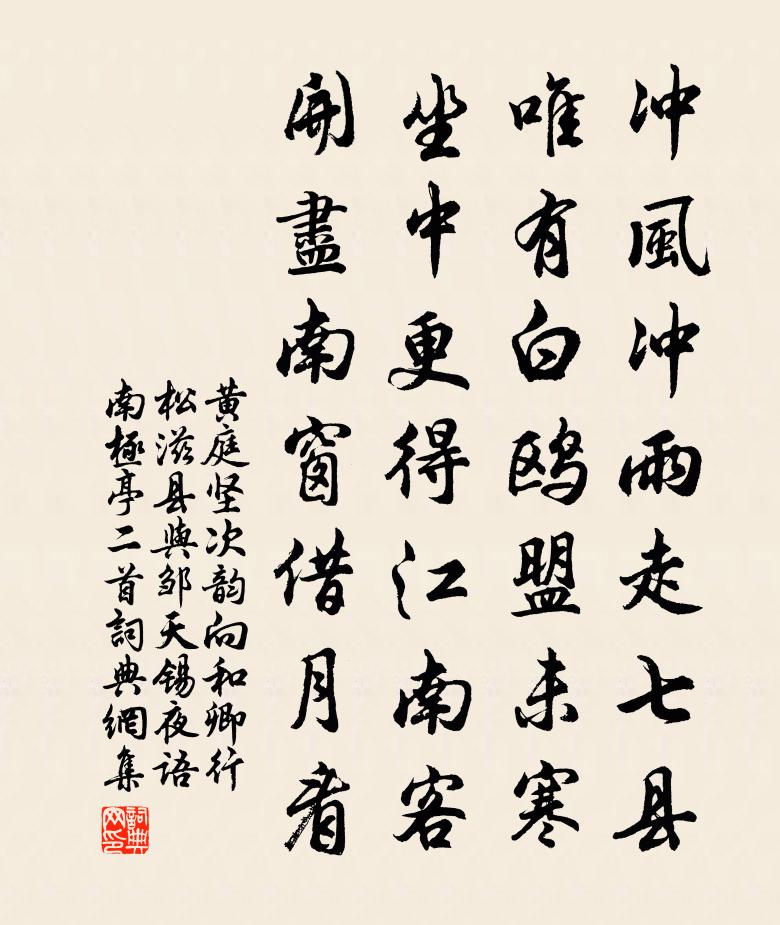 冲風冲雨走七县
唯有白鸥盟未寒
坐中更得江南客
開盡南窗借月看
黄庭坚次韵向和卿行
松滋县與邹天锡夜语
南極亭二首詞典網集
詞典
网印